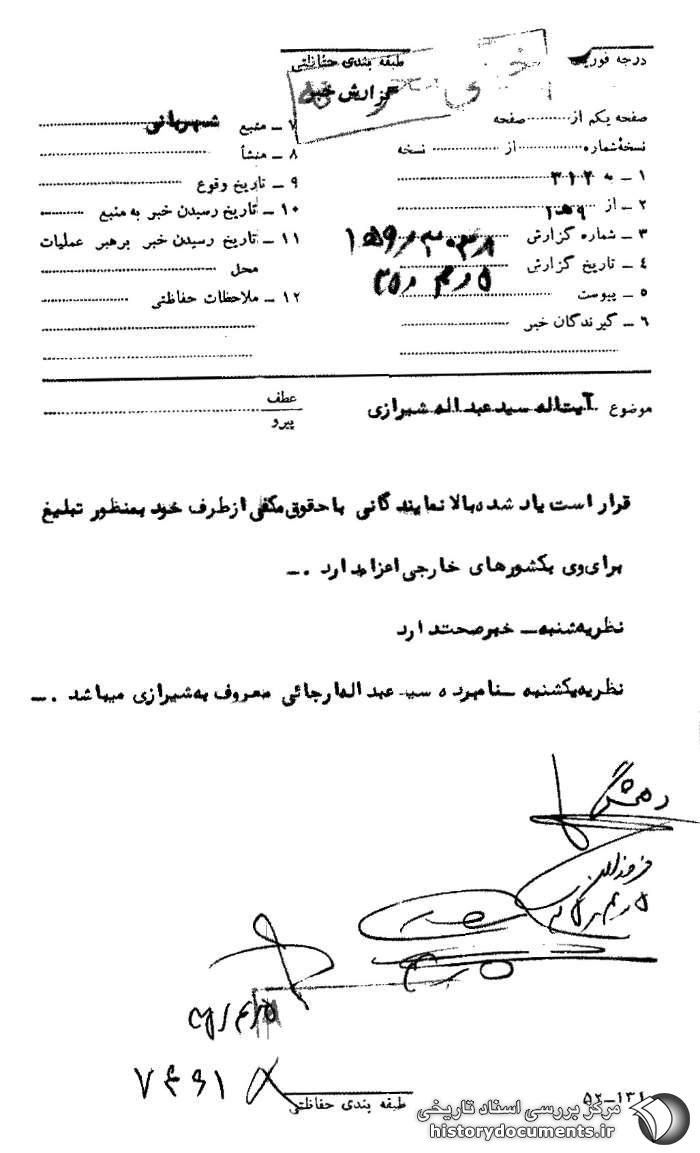 درجه فوریت
طبقه بندی حفاظتی
خیلی محرمانه
گزارش خبر
صفحه یکم از ........ صفحه
نسخهٔ شماره ........ از ........ نسخه
۱ ــ به ۳۱۲
۲ ــ از ۱۵۹
۳ ــ شماره گزارش
۴ ــ تاریخ گزارش
۵ ــ پیوست
۶ ــ گیرندگان خبر
۷ ــ منبع شهربانی
۸ ــ منشأ
۹ ــ تاریخ وقوع
۱۰ ــ تاریخ رسیدن خبر به منبع
۱۱ ــ تاریخ رسیدن خبر برهبر عملیات
محل
۱۲ ــ ملاحظات حفاظتی
موضوع آیت‌اله سید عبداله شیرازی
عطف
پیرو
قرار است یاد شده بالا نمایندگانی با حقوق مکفی از طرف خود بمنظور تبلیغ
برای وی بکشورهای خارجی اعزام دارد .ــ
نظریه شنبه ــ خبر صحت دارد
نظریه یکشنبه ــ نامبرده سید عبداله ارجائی معروف به شیرازی میباشد .ــ
۷۴۶۱۸
طبقه بندی حفاظتی
۵۲ــ۱۳۱
مرکز بررسی اسناد تاریخی
historydocuments.ir